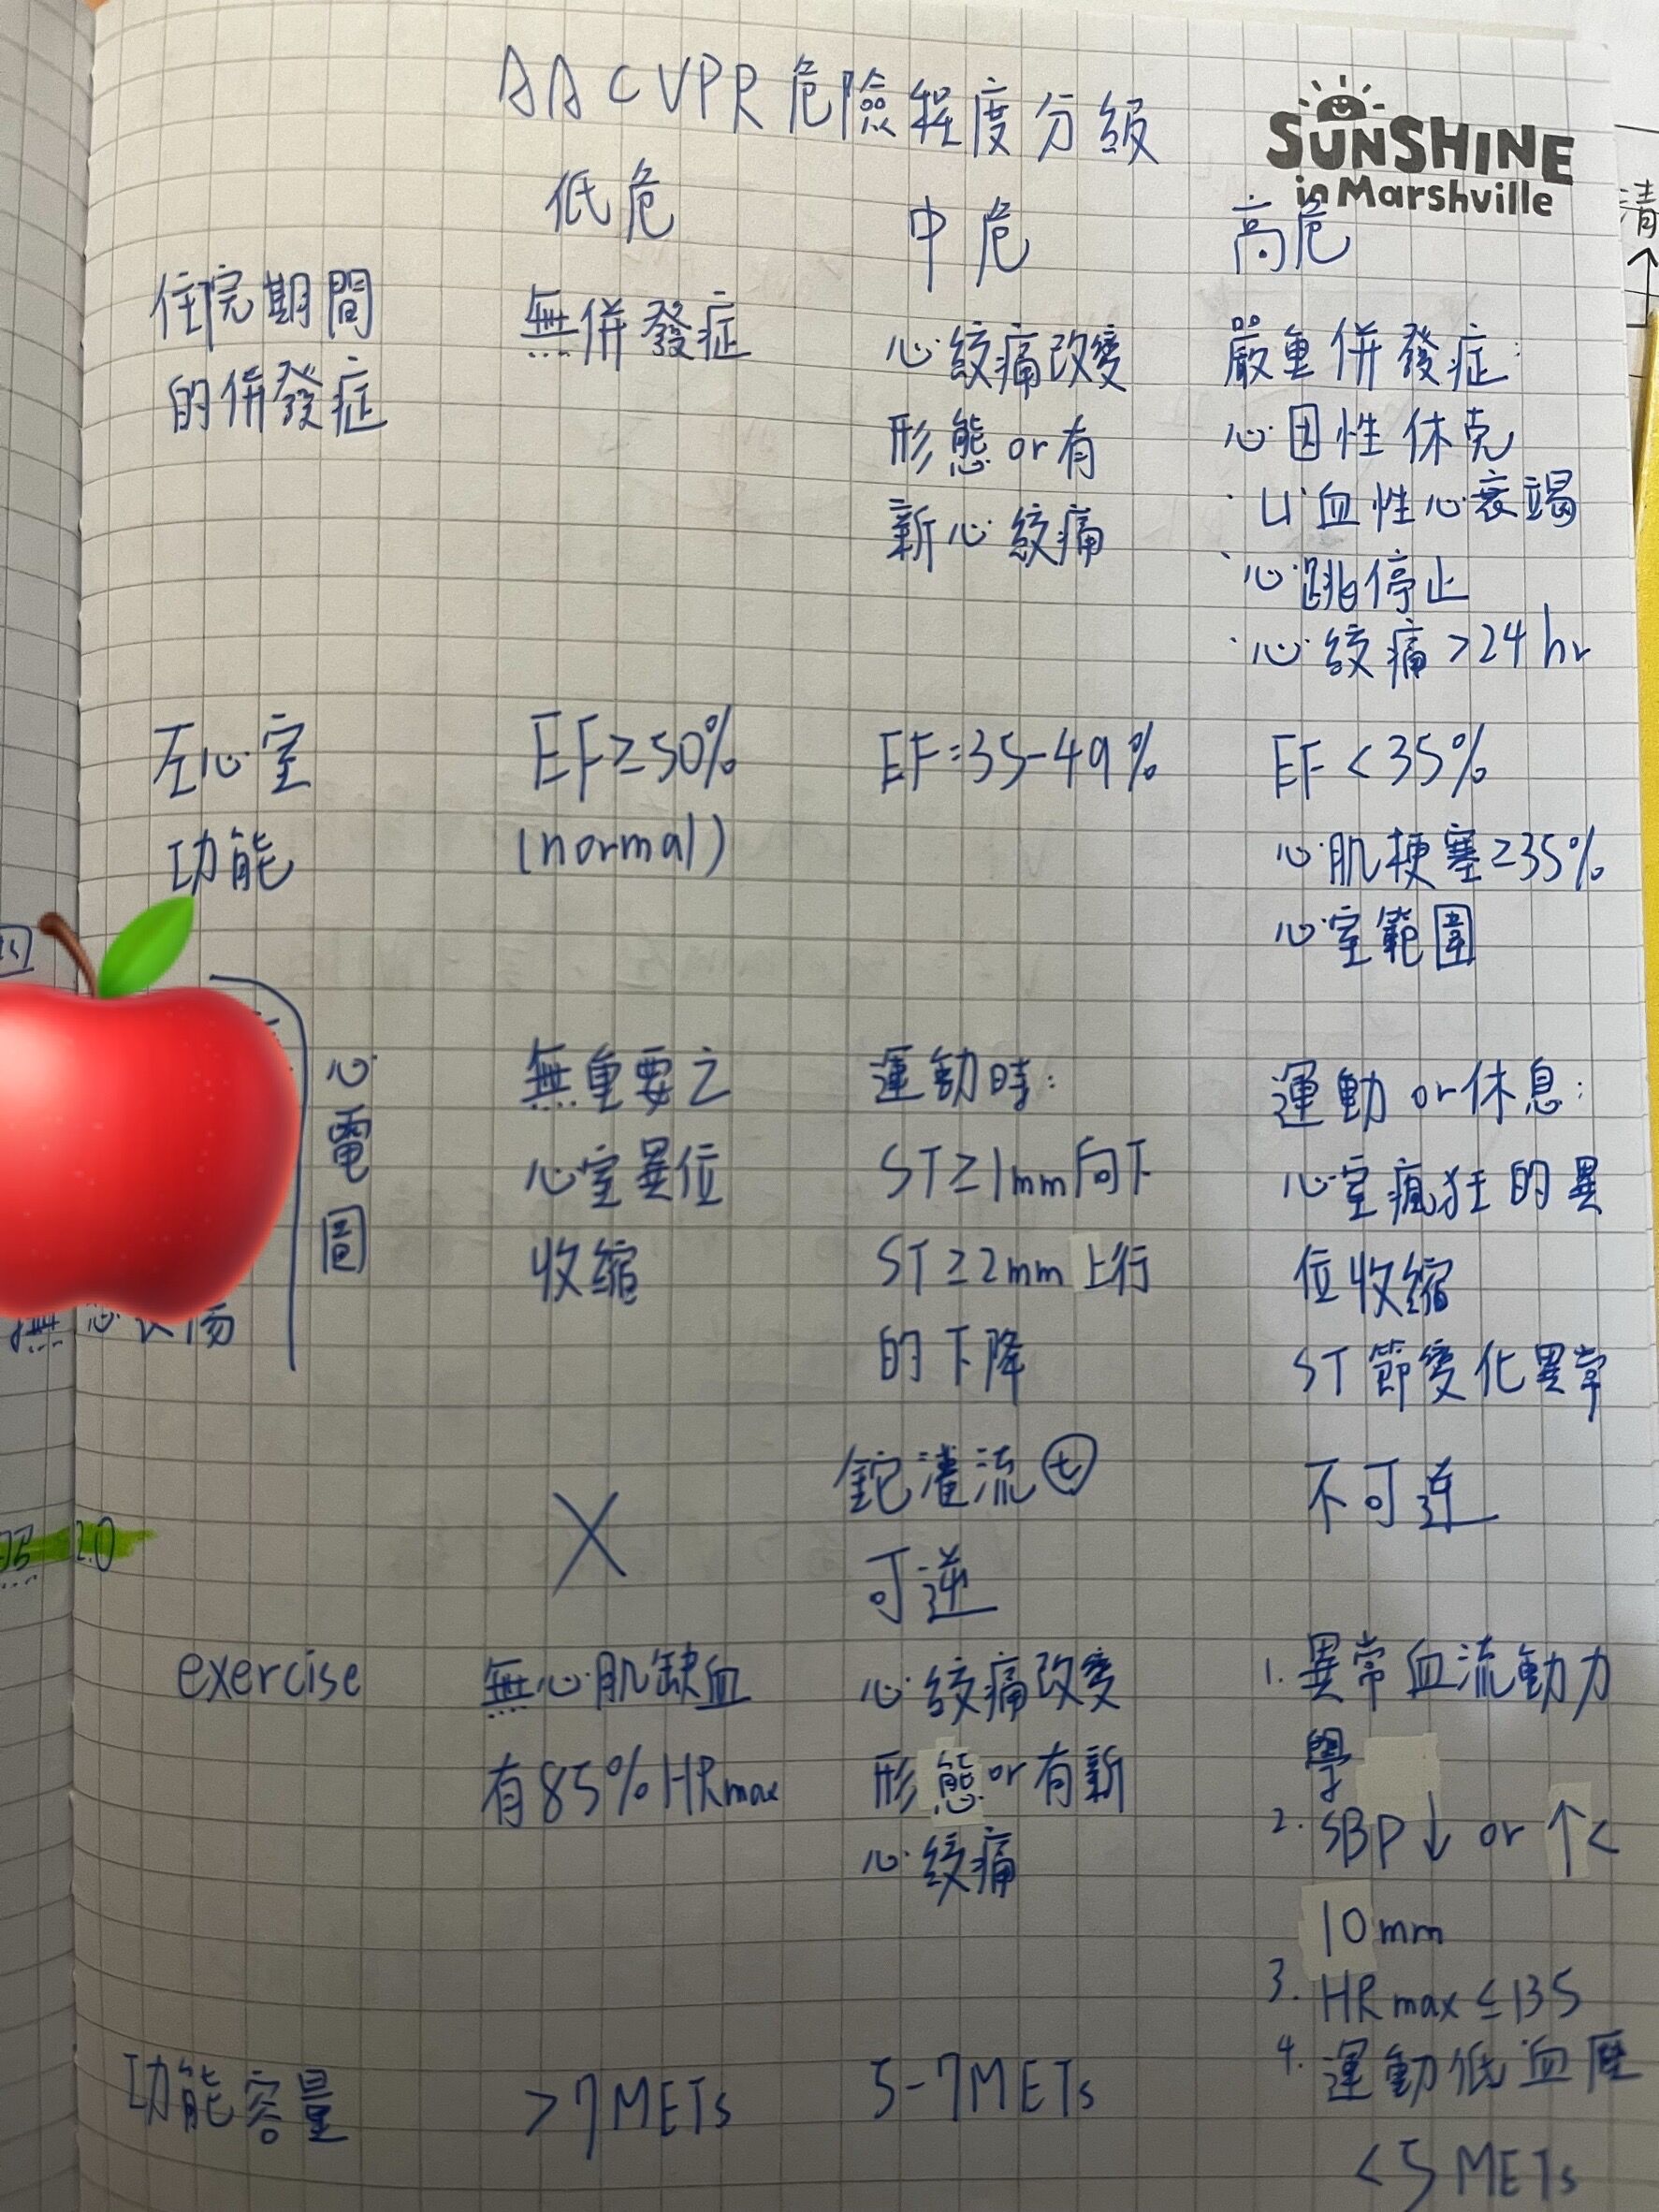 AACVPR危險程度分級
SUNSHINE
in Marshville
清
低危
中危
高危
住院期間
的併發症
無併發症
心絞痛改變
形態 or 有
新心絞痛
嚴重併發症:
心因性休克
·凵血性心衰竭
·心跳停止
·心絞痛>24hr
左心室
功能
EF≥50%
(normal)
EF=35-49%
EF<35%
心肌梗塞≥35%
心室範圍
心電圖
無重要之
心室異位
收縮
運動時:
ST≥1mm向下
ST≥2mm上行
的下降
運動 or 休息:
心室瘋狂的異
位收縮
ST節變化異常
X
鉈灌流⊕
可逆
不可逆
2.0
exercise
無心肌缺血
有85%HRmax
心絞痛改變
形態 or 有新
心絞痛
1. 異常血流動力
學
2. SBP↓ or ↑<
10mm
3. HRmax≤135
4. 運動低血壓
功能容量
>7METs
5-7METs
<5METs